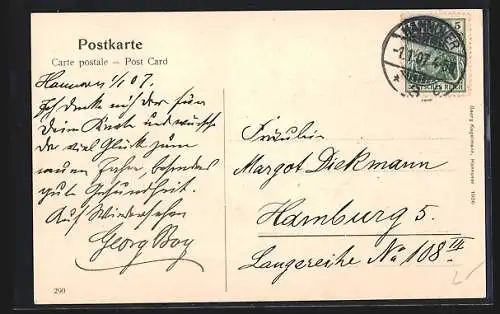 Postkarte
Carte postale – Post Card
Hannover 1/1 07.
Ich danke mich der für
Deine Karte und wünsche
Dir viel Glück zum
neuen Jahre, besonders
gute Gesundheit.
Auf Wiedersehn
Georg Boy
290
HANNOVER
-1.1.07.
5
DEUTSCHES REICH
Fräulein
Margot Diekmann
Hamburg 5.
Langereihe No 108 III
Hannover 1906